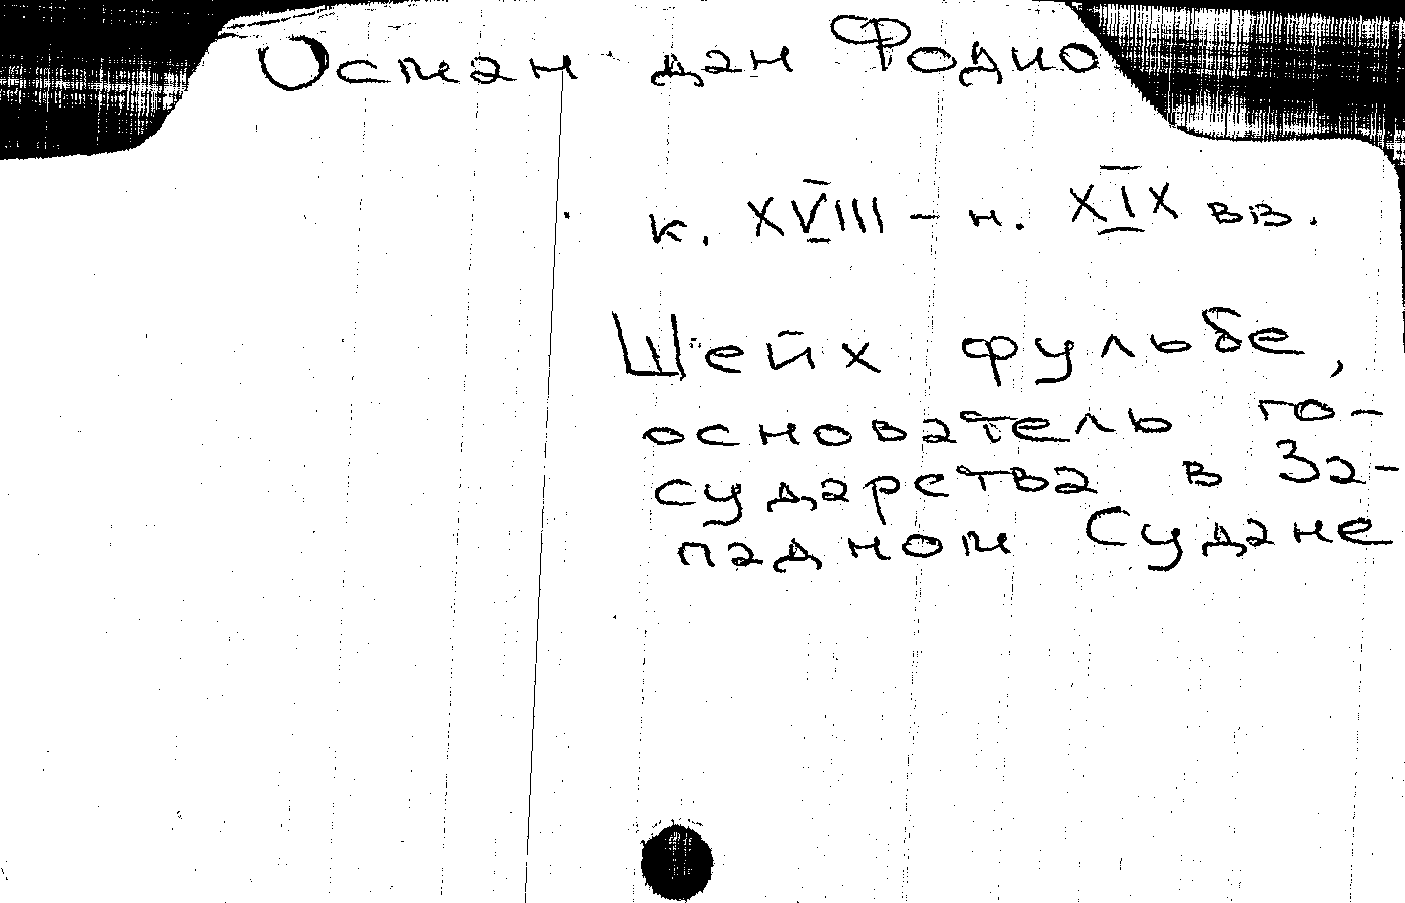 Осман дан Фодио
к. XVIII – н. XIX вв.
Шейх фульбе,
основатель го-
сударства в За-
падном Судане